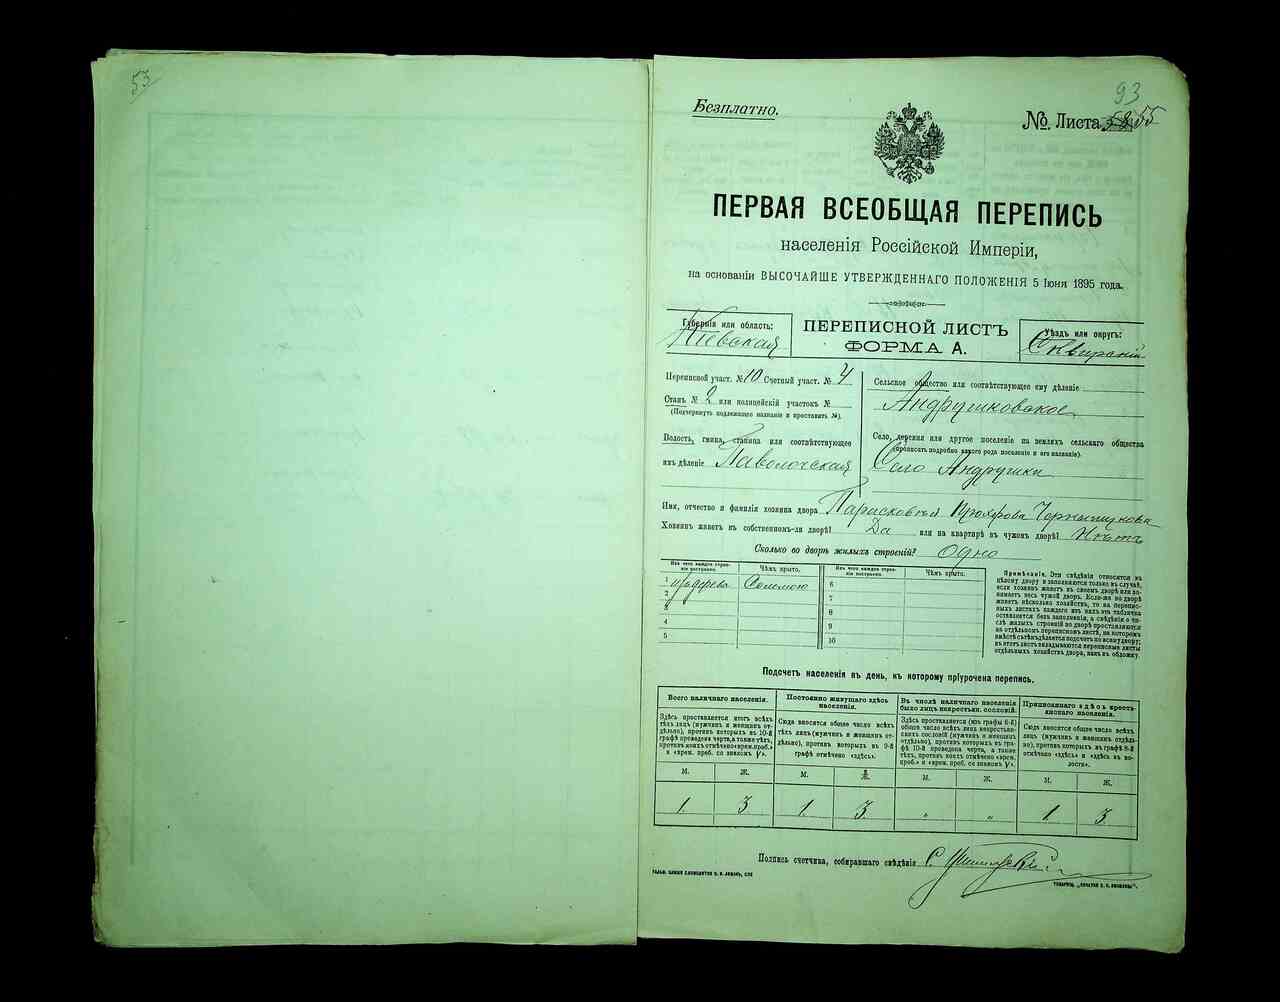 53
93
Безплатно.
№ Листа 58 55
ПЕРВАЯ ВСЕОБЩАЯ ПЕРЕПИСЬ
населенія Россійской Имперіи,
на основаніи ВЫСОЧАЙШЕ УТВЕРЖДЕННАГО ПОЛОЖЕНІЯ 5 Іюня 1895 года.
Губернія или область:
Кіевская
ПЕРЕПИСНОЙ ЛИСТЪ
ФОРМА А.
Уѣздъ или округъ:
Сквирскій
Переписной участ. № 10 Счетный участ. № 4
Станъ № 2 или полицейскій участокъ №
(Подчеркнуть подлежащее названіе и проставить №).
Волость, гмина, станица или соотвѣтствующее
ихъ дѣленіе Паволочская
Сельское общество или соотвѣтствующее ему дѣленіе
Андрушковское
Село, деревня или другое поселеніе на земляхъ сельскаго общества
(прописать подробно какого рода поселеніе и его названіе).
Село Андрушки
Имя, отчество и фамилія хозяина двора Парасковія Прохорова Чернышукова
Хозяинъ живетъ въ собственномъ-ли дворѣ? Да или на квартирѣ въ чужомъ дворѣ? Нѣтъ
Сколько во дворѣ жилыхъ строеній? Одно
Изъ чего каждое строеніе построено.
Чѣмъ крыто.
Изъ чего каждое строеніе построено.
Чѣмъ крыто.
1 изъ дерева Соломою
2
3
4
5
6
7
8
9
10
Примѣчаніе. Эти свѣдѣнія относятся къ
цѣлому двору и заполняются только въ случаѣ,
если хозяинъ живетъ въ своемъ дворѣ или занимаетъ весь чужой дворъ. Если-же во дворѣ
живетъ нѣсколько хозяйствъ, то на переписныхъ листахъ каждаго изъ нихъ эта табличка
оставляется безъ заполненія, а свѣдѣнія о числѣ жилыхъ строеній во дворѣ проставляются
на отдѣльномъ переписномъ листѣ, на которомъ
вмѣстѣ съ тѣмъ дѣлается подсчетъ по всему двору;
въ этотъ листъ вкладываются переписные листы
отдѣльныхъ хозяйствъ двора, какъ въ обложку.
Подсчетъ населенія въ день, къ которому пріурочена перепись.
Всего наличнаго населенія.
Здѣсь проставляется итогъ всѣхъ
тѣхъ лицъ (мужчинъ и женщинъ отдѣльно), противъ которыхъ въ 10-й
графѣ проведена черта, а также тѣхъ,
противъ коихъ отмѣчено «врем. проб.»
и «врем. проб. со знакомъ V».
Постоянно живущаго здѣсь
населенія.
Сюда вносится общее число всѣхъ
тѣхъ лицъ (мужчинъ и женщинъ отдѣльно), противъ которыхъ въ 9-й
графѣ отмѣчено «здѣсь».
Въ числѣ наличнаго населенія
было лицъ некрестьян. сословій.
Здѣсь проставляется (изъ графы 6-й)
общее число всѣхъ лицъ некрестьянскихъ сословій (мужчинъ и женщинъ
отдѣльно), противъ которыхъ въ графѣ 10-й проведена черта, а также
тѣхъ, противъ коихъ отмѣчено «врем.
проб.» и «врем. проб. со знакомъ V».
Приписаннаго здѣсь крестьянскаго населенія.
Сюда вносится общее число всѣхъ
лицъ (мужчинъ и женщинъ отдѣльно), противъ которыхъ въ графѣ 8-й
отмѣчено «здѣсь» и «здѣсь въ волости».
М. Ж. М. Ж. М. Ж. М. Ж.
1 3 1 3 „ „ 1 3
Подпись счетчика, собиравшаго свѣдѣнія С.